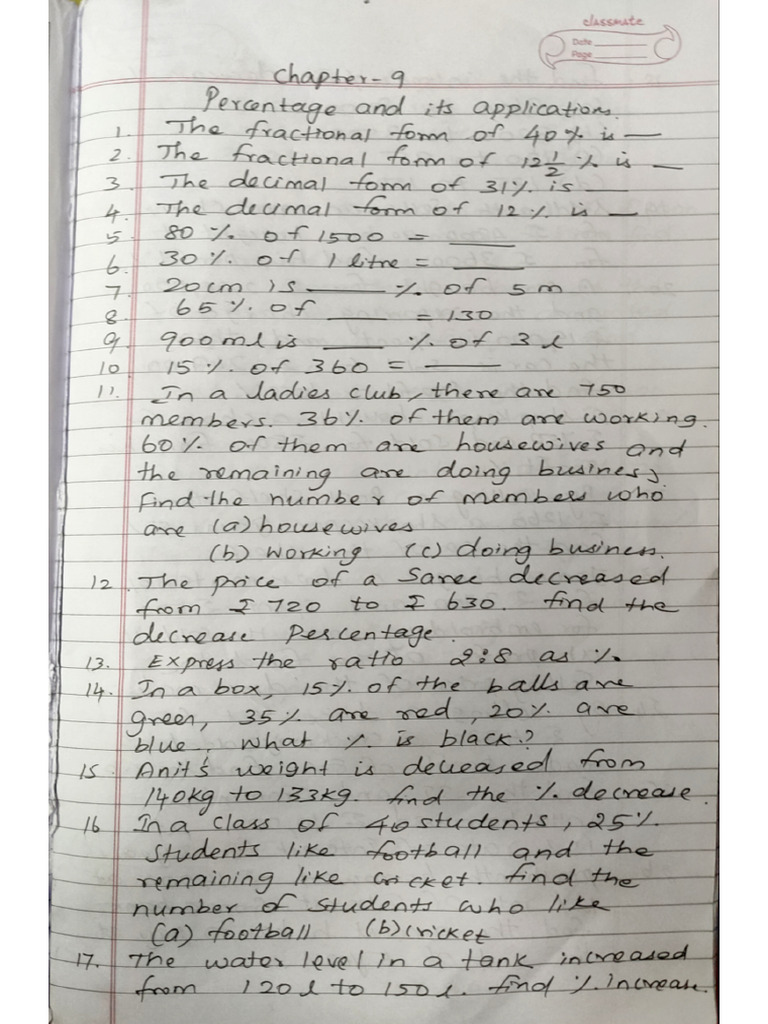 classmate
Date
Page
Chapter-9
Percentage and its applications.
1. The fractional form of 40% is —
2. The fractional form of 12 1/2 % is —
3. The decimal form of 31% is —
4. The decimal form of 12% is —
5. 80 % of 1500 = ___
6. 30 % of 1 litre = ___
7. 20cm is ___ % of 5 m
8. 65 % of ___ = 130
9. 900 ml is ___ % of 3 l
10. 15 % of 360 = ___
11. In a ladies club, there are 750
members. 36% of them are working.
60% of them are housewives and
the remaining are doing business.
Find the number of members who
are (a) housewives
(b) working (c) doing business.
12. The price of a Saree decreased
from ₹ 720 to ₹ 630. find the
decrease Percentage.
13. Express the ratio 2:8 as %
14. In a box, 15% of the balls are
green, 35% are red, 20% are
blue. What % is black?
15. Anit's weight is deceased from
140kg to 133kg. find the % decrease.
16 In a class of 40 students, 25%
students like football and the
remaining like cricket. find the
number of students who like
(a) football (b) cricket
17. The water level in a tank increased
from 120 l to 150 l. find % increase.